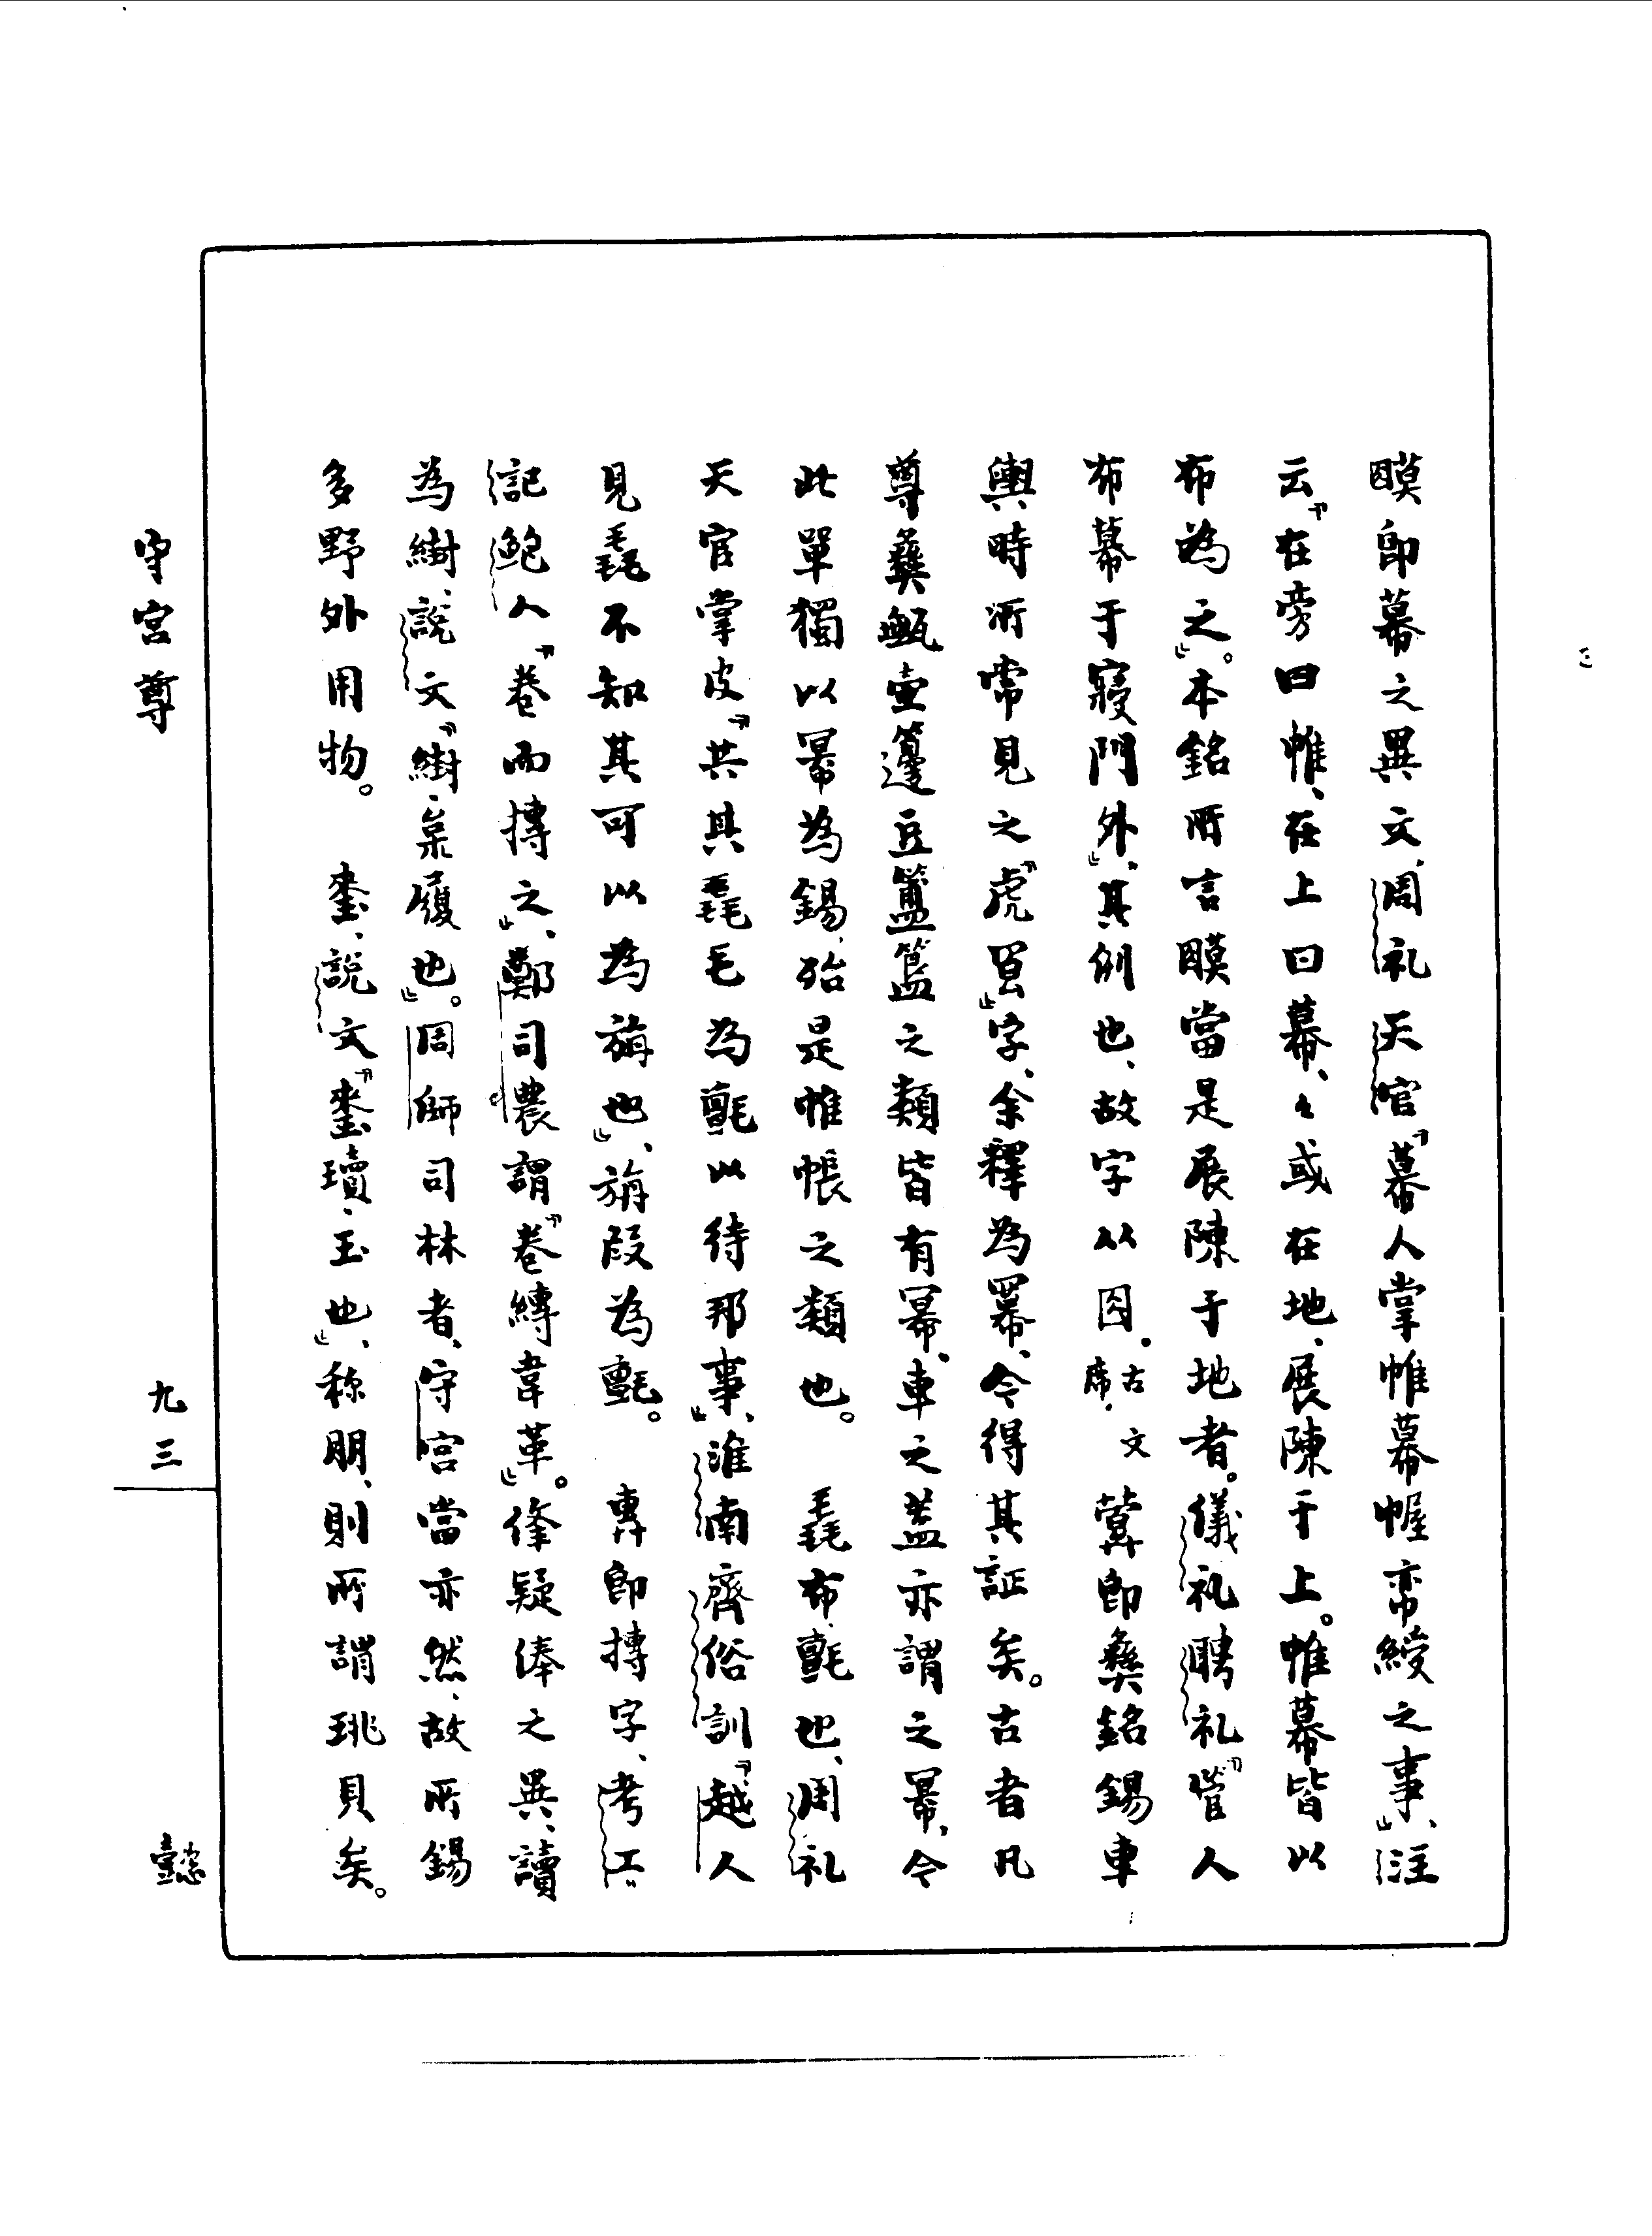 䁼即幕之異文、周礼天官『幕人掌帷幕幄帟綬之事』、注
云『在旁曰帷、在上曰幕、々或在地、展陳于上。帷幕皆以
布為之』。本銘所言䁼當是展陳于地者。儀礼聘礼『管人
布幕于寢門外』、其例也、故字从囙。古文席. 䔇即彝銘錫車
輿時所常見之『虎冟』字、余釋為冪、今得其証矣。古者凡
尊彝甒壷籩豆簠簋之類皆有冪、車之蓋亦謂之冪、今
此單獨以冪為錫、殆是帷帳之類也。 毳布、氈也、周礼
天官掌皮『共其毳毛為氈以待邦事』、淮南齊俗訓『越人
見毳不知其可以為旃也』、旃叚為氈。 專即摶字、考工
記鮑人『卷而摶之』、鄭司農謂『卷縳韋革』。㑻疑俸之異、讀
為紨、說文『紨、枲履也』。周師司林者、守宮當亦然、故所錫
多野外用物。 𡍮、說文『𡍮瓄、玉也』、称朋、則所謂珧貝矣。
守宮尊
九三